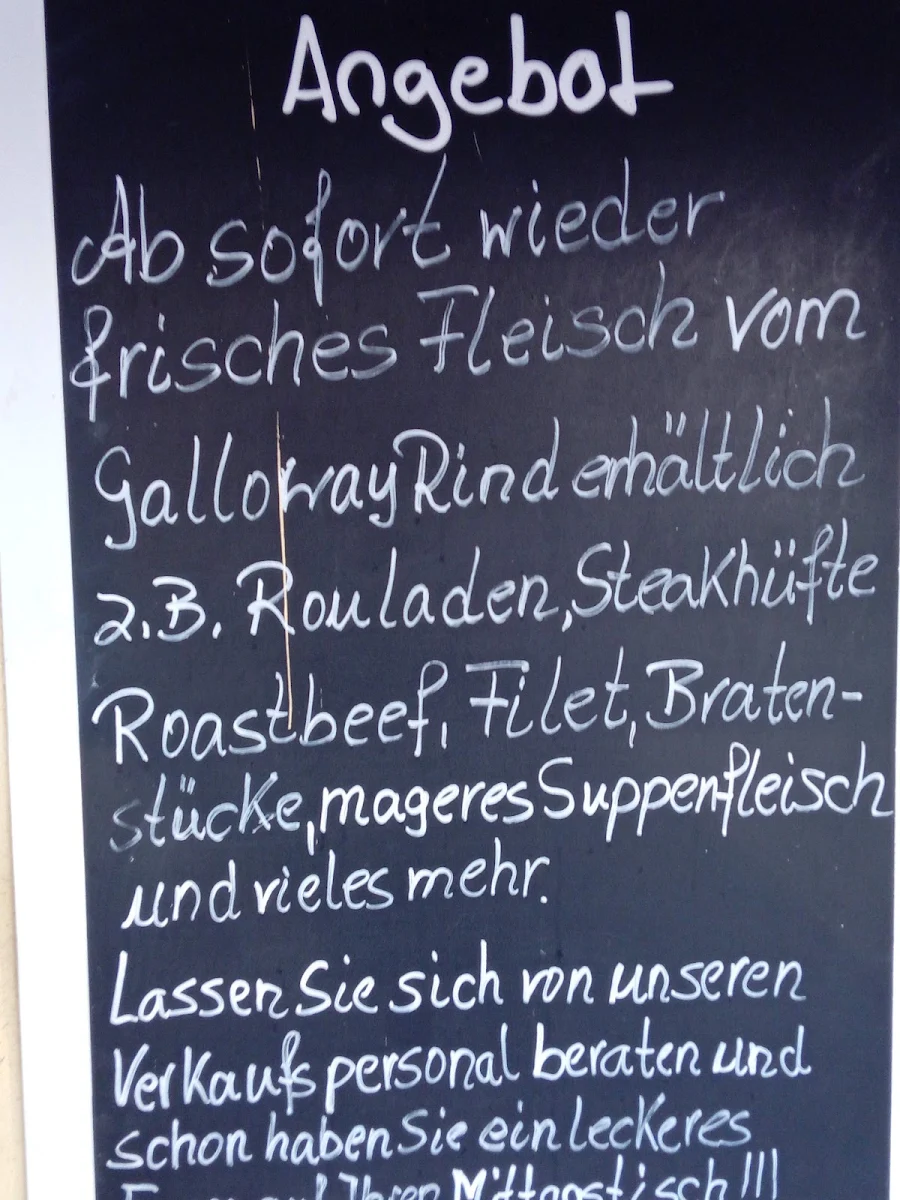 Angebot
Ab sofort wieder
frisches Fleisch vom
Galloway Rind erhältlich
z.B. Rouladen, Steakhüfte
Roastbeef, Filet, Braten-
stücke, mageres Suppenfleisch
und vieles mehr.
Lassen Sie sich von unseren
Verkaufspersonal beraten und
schon haben Sie ein leckeres
auf Ihren Mittagstisch!!!